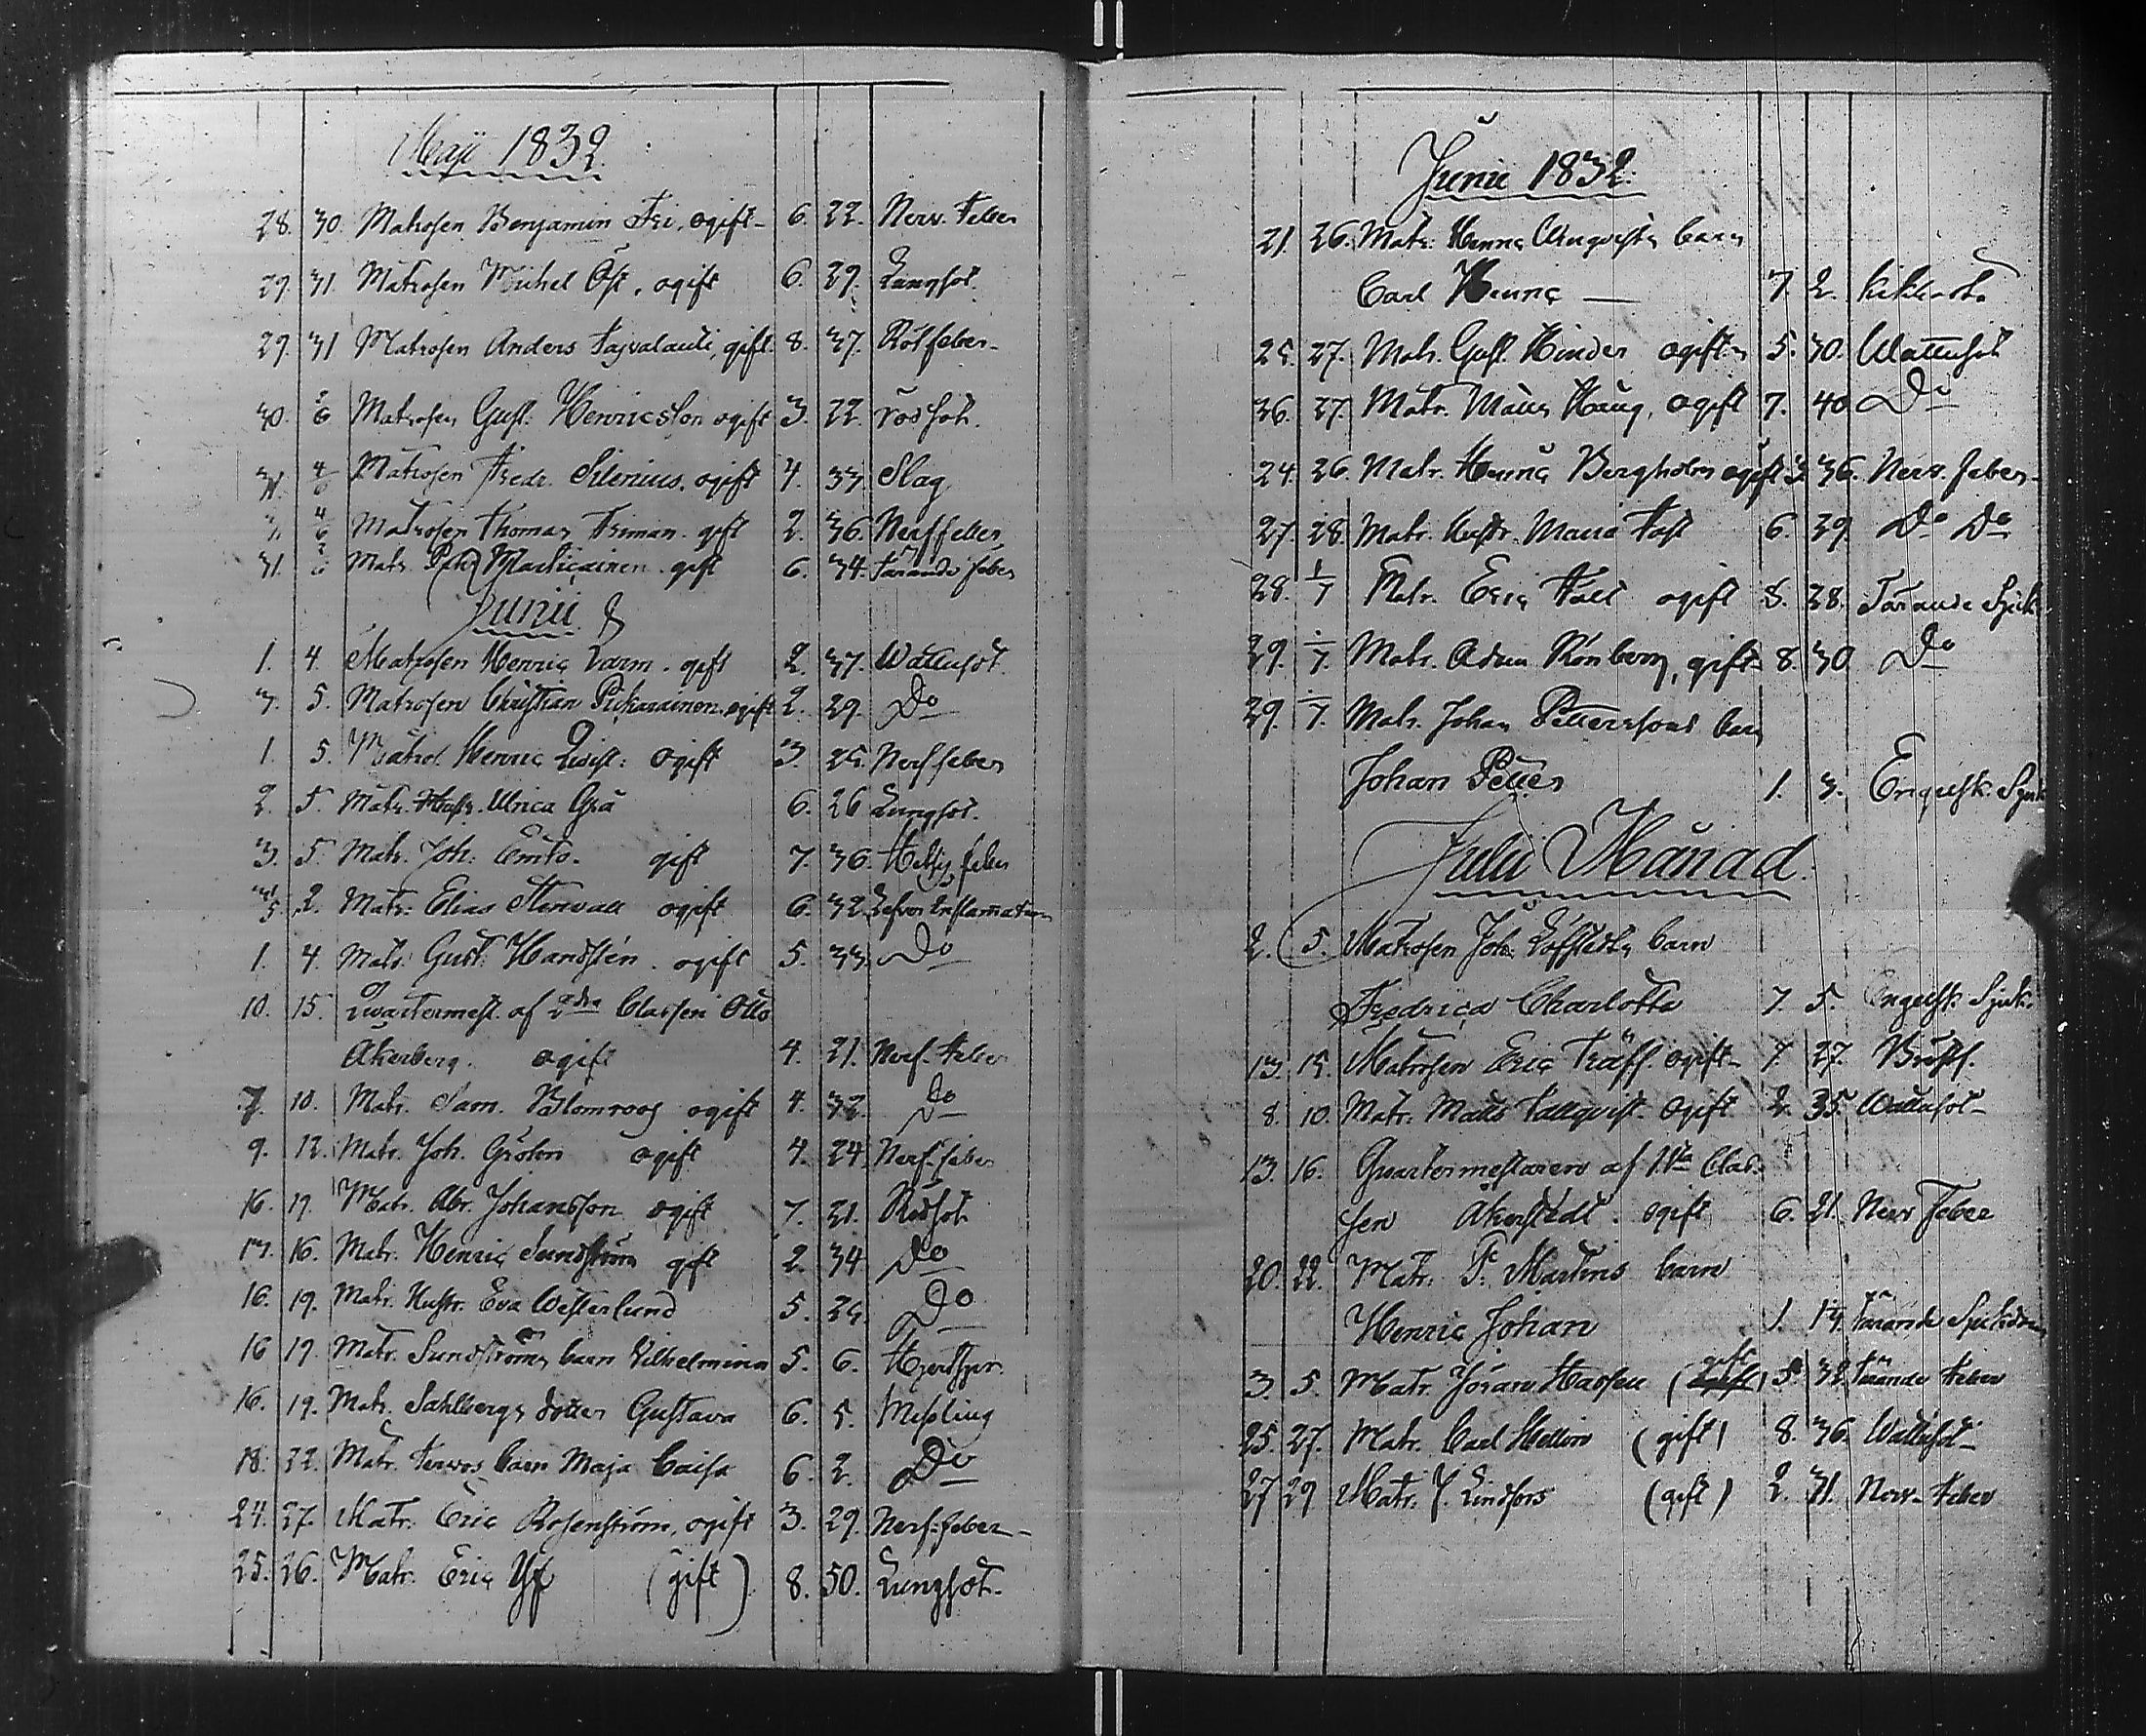 Maji 1832.
28. 30. Matrosen Benjamin Fri, ogift 6. 22. Nerv. Feber
29. 31. Matrosen Michel Öst, ogift 6. 29. Lungsot.
29. 31 Matrosen Anders, gift. 8. 37. Rötfeber
30. 2/6 Matrosen Gust: Henricsson ogift 3. 22. rödsot.
31. 4/6 Matrosen Fredr. Silenius. ogift 7. 33. Slag
4/6 Matrosen Thomas Friman. gift 2. 36. Nerffeber
31. Matr. Marticainen. gift 6. 34. Tärande feber
Junii
1. 4. Matrosen Henric Varm. gift 2. 37. Wattusot.
3. 5. Matrosen Christian Pickarainen. ogift 2. 29. Do
1. 5. Matros. Henric Qvist: ogift 3. 25. Nerffeber
2. 5. Matr. Hustr. Ulrica Grå 6. 26 Lungsot.
3. 5. Matr. Joh: gift 7. 36. Hetsig feber
31/5 2. Matr: Elias Stenvall ogift 6. 32. Lefver Inflammation
1. 4. Matr: Gust: Handstén. ogift 5. 33. Do
10. 15. Qvartermest. af 2dra Classen Otto
Åkerberg. ogift 4. 21. Nerf. Feber
7. 10. Matr. Sam. Blomroos ogift 4. 32. Do
9. 12. Matr. Joh. Gröhn ogift 4. 24. Nerf. feber
16. 19. Matr. Abr. Johansson ogift 7. 21. Rödsot
13. 16. Matr. Henric Sundström gift 2. 34 Do
16. 19. Matr. Hustr. Eva Westerlund 5. 24. Do
16 19. Matr. Sundströms barn Vilhelmina 5. 6.
16. 19. Matr. Sahlbergs dotter Gustava 6. 5. Messling
18. 22. Matr. barn Maja Caisa 6. 2. Do
24. 27. Matr. Eric Rosenström, ogift 3. 29. Nerf. feber
25. 26. Matr. Eric (gift). 8. 50. Lungsot.
Junii 1832.
21. 26. Matr: barn
Carl 7. 2. Kikhosta
25. 27. Matr. Gust. Hinder ogift 5. 30. Wattusot
26. 27. Matr. Haug, ogift 7. 40 Do
24. 26. Matr. Henric Bergholm ogift 3. 36. Nerv. feber
27. 28. Matr. Hustr. Maria Fast 6. 39. Do Do
28. 1/7 Matr. Eric Fall ogift 5. 28. Tärande Sjuk
29. 1/7. Matr. Adam Rönberg, gift 8. 30. Do
29. 1/7. Matr. Johan Petterssons barn
Johan Petter 1. 3. Engelsk. Sjuk
Julii Månad.
2. 5. Matrosen Joh: barn
Fredrica Charlotta 7. 5. Engelsk Sjuk.
13. 15. Matrosen Eric Träff. ogift 7 27. Bröstf.
8. 10. Matr. Matts Tallqvist. ogift 2. 35. Wattusot
13. 16. Qvartermestaren af 1sta Clas-
sen Åkerstedt. ogift 6. 21. Nerv Feber
20. 22. Matr: P: Martins barn
Henric Johan 1. Tärande Sjukdom
gift
3. 5. Matr. Jöran Hassell (ogift) 5 32. Tärande Feber
25. 27. Matr. Carl Hellin (gift) 8. 36. Wattusot
27 29 Matr. J. Lindfors (gift) 2. 31. Nerv. Feber